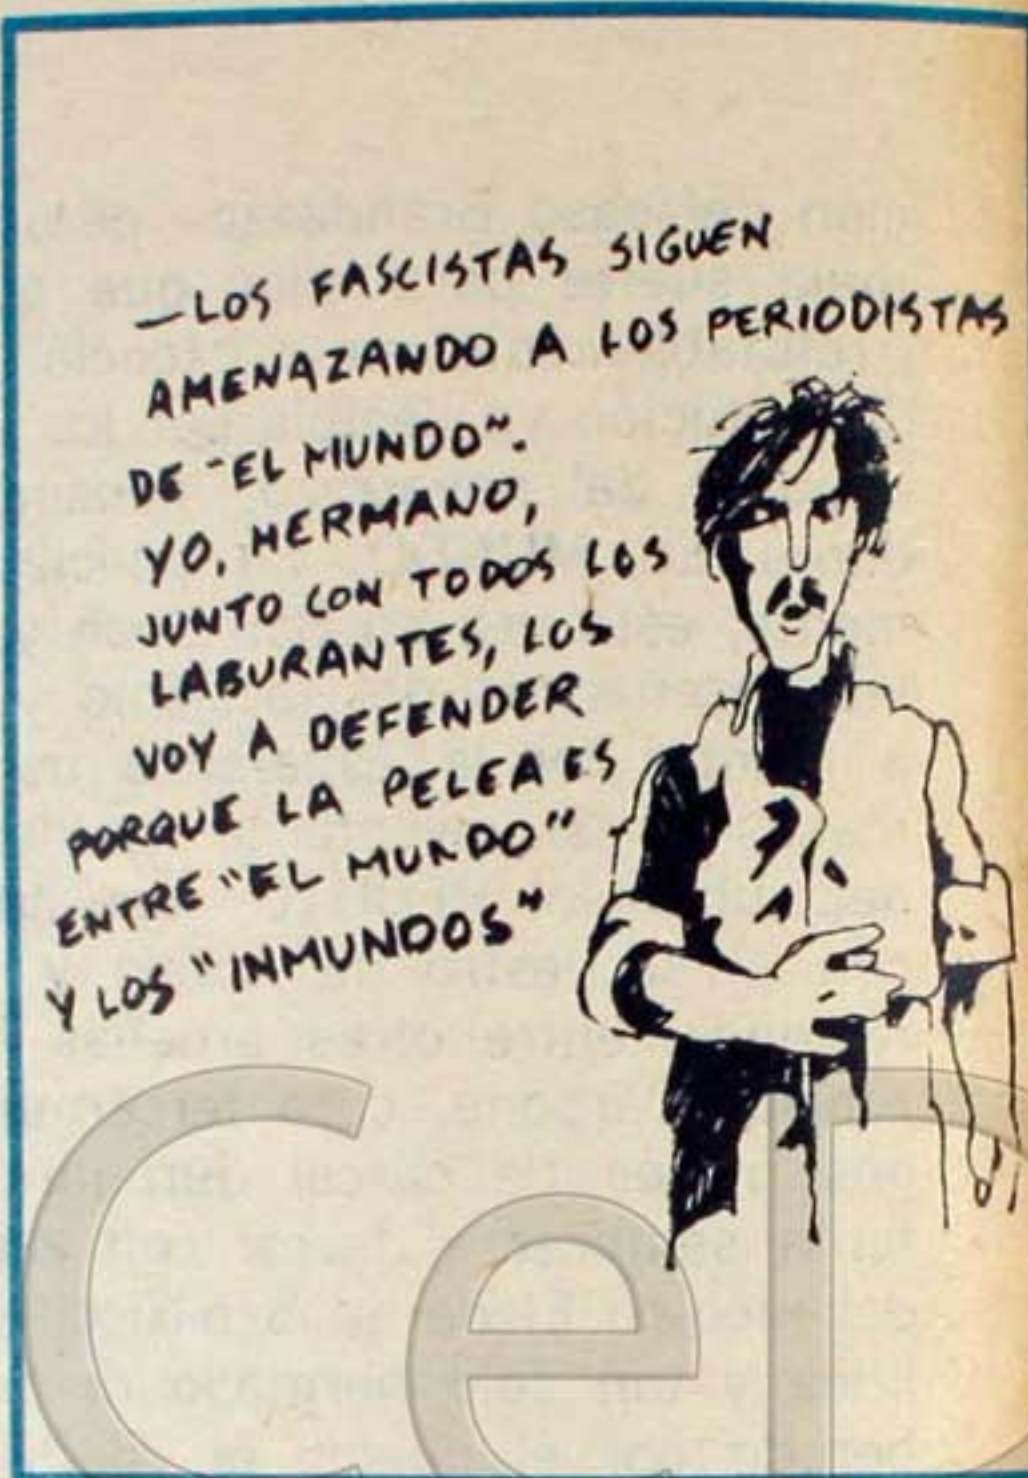 —LOS FASCISTAS SIGUEN
AMENAZANDO A LOS PERIODISTAS
DE "EL MUNDO".
YO, HERMANO,
JUNTO CON TODOS LOS
LABURANTES, LOS
VOY A DEFENDER
PORQUE LA PELEA ES
ENTRE "EL MUNDO"
Y LOS "INMUNDOS"
Ce